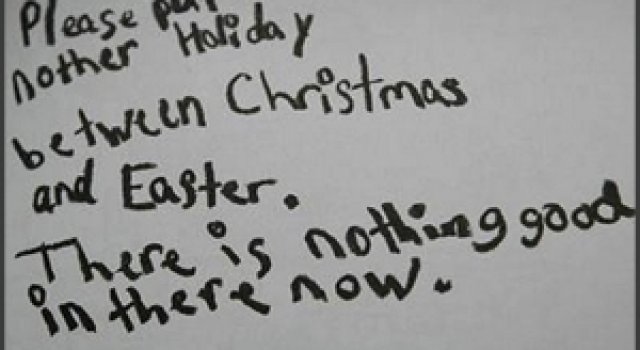 Please put
nother Holiday
between Christmas
and Easter.
There is nothing good
in there now.